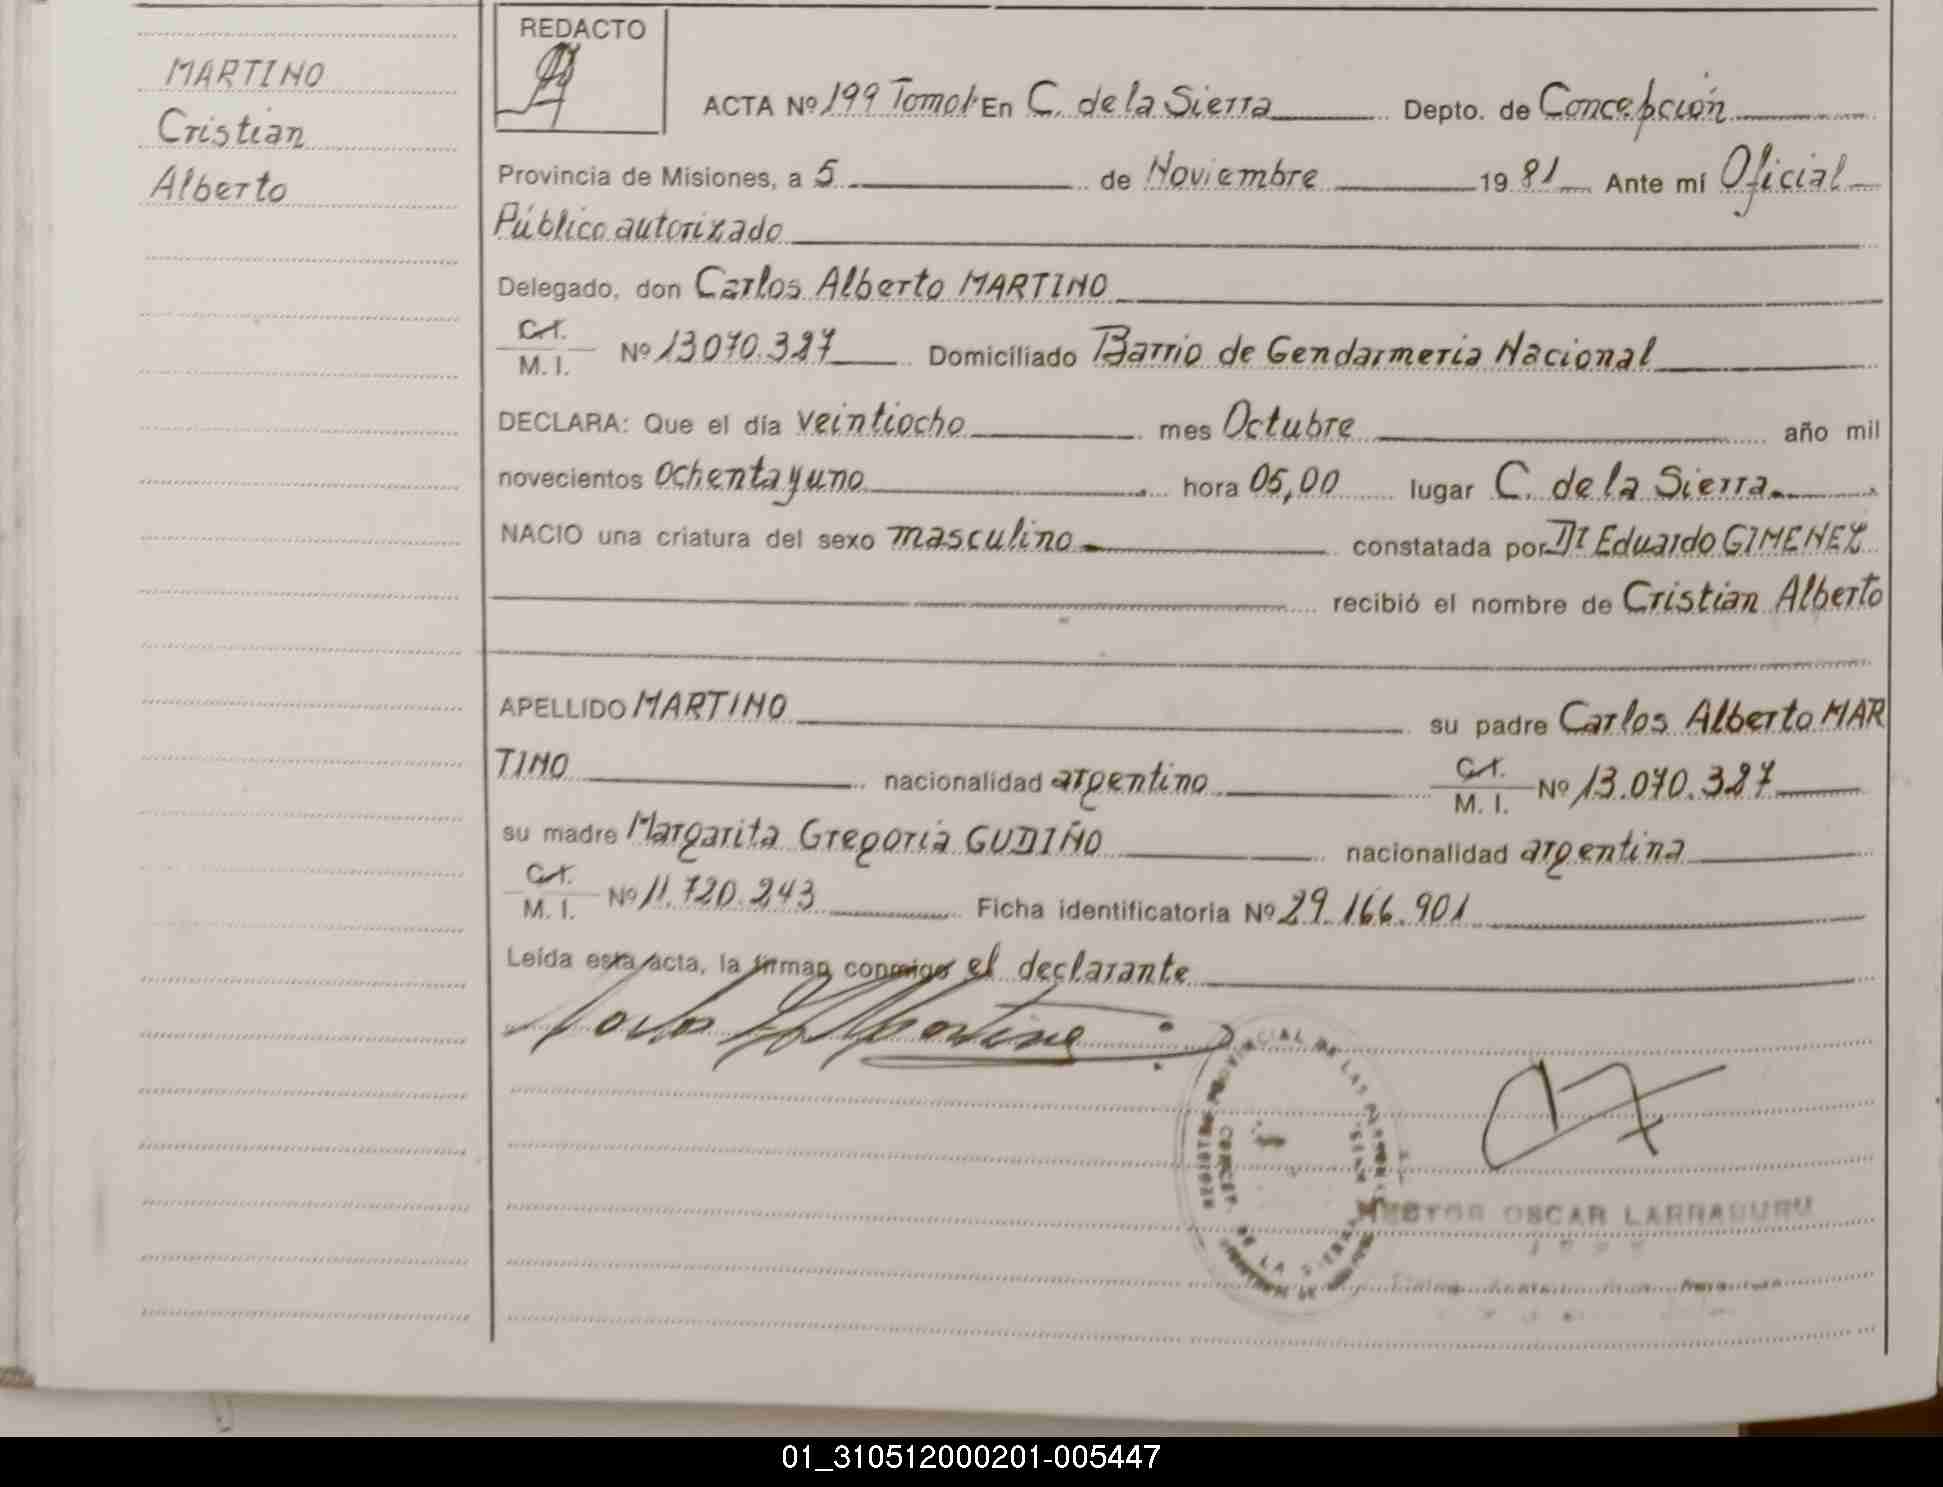 MARTINO
Cristian
Alberto
REDACTO
ACTA Nº 199 Tomo I En C. de la Sierra Depto. de Concepción
Provincia de Misiones, a 5 de Noviembre 1981 Ante mí Oficial
Público autorizado
Delegado, don Carlos Alberto MARTINO
C.I. M. I. Nº 13.070.327 Domiciliado Barrio de Gendarmeria Nacional
DECLARA: Que el día veintiocho mes Octubre año mil
novecientos ochenta y uno hora 05,00 lugar C. de la Sierra
NACIO una criatura del sexo masculino constatada por Dr Eduardo GIMENEZ
recibió el nombre de Cristian Alberto
APELLIDO MARTINO su padre Carlos Alberto MAR
TINO nacionalidad argentino C.I. M. I. Nº 13.070.327
su madre Margarita Gregoria GUDIÑO nacionalidad argentina
C.I. M. I. Nº 11.720.243 Ficha identificatoria Nº 29.166.901
Leída esta acta, la firman conmigo el declarante
HECTOR OSCAR LARRABURU
01_310512000201-005447